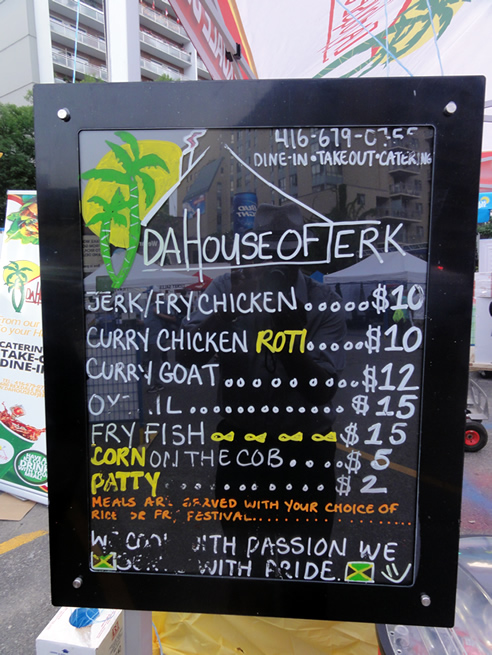 416-619-
DINE-IN•TAKEOUT•CATERING
DA HOUSE OF JERK
JERK/FRY CHICKEN.....$10
CURRY CHICKEN ROTI.....$10
CURRY GOAT ........$12
$15
FRY FISH $15
CORN ON THE COB....$5
PATTY ........$2
MEALS ARE SERVED WITH YOUR CHOICE OF
RICE OR FESTIVAL
WITH PASSION WE
WITH PRIDE.
CATERING
TAKE-
DINE-IN